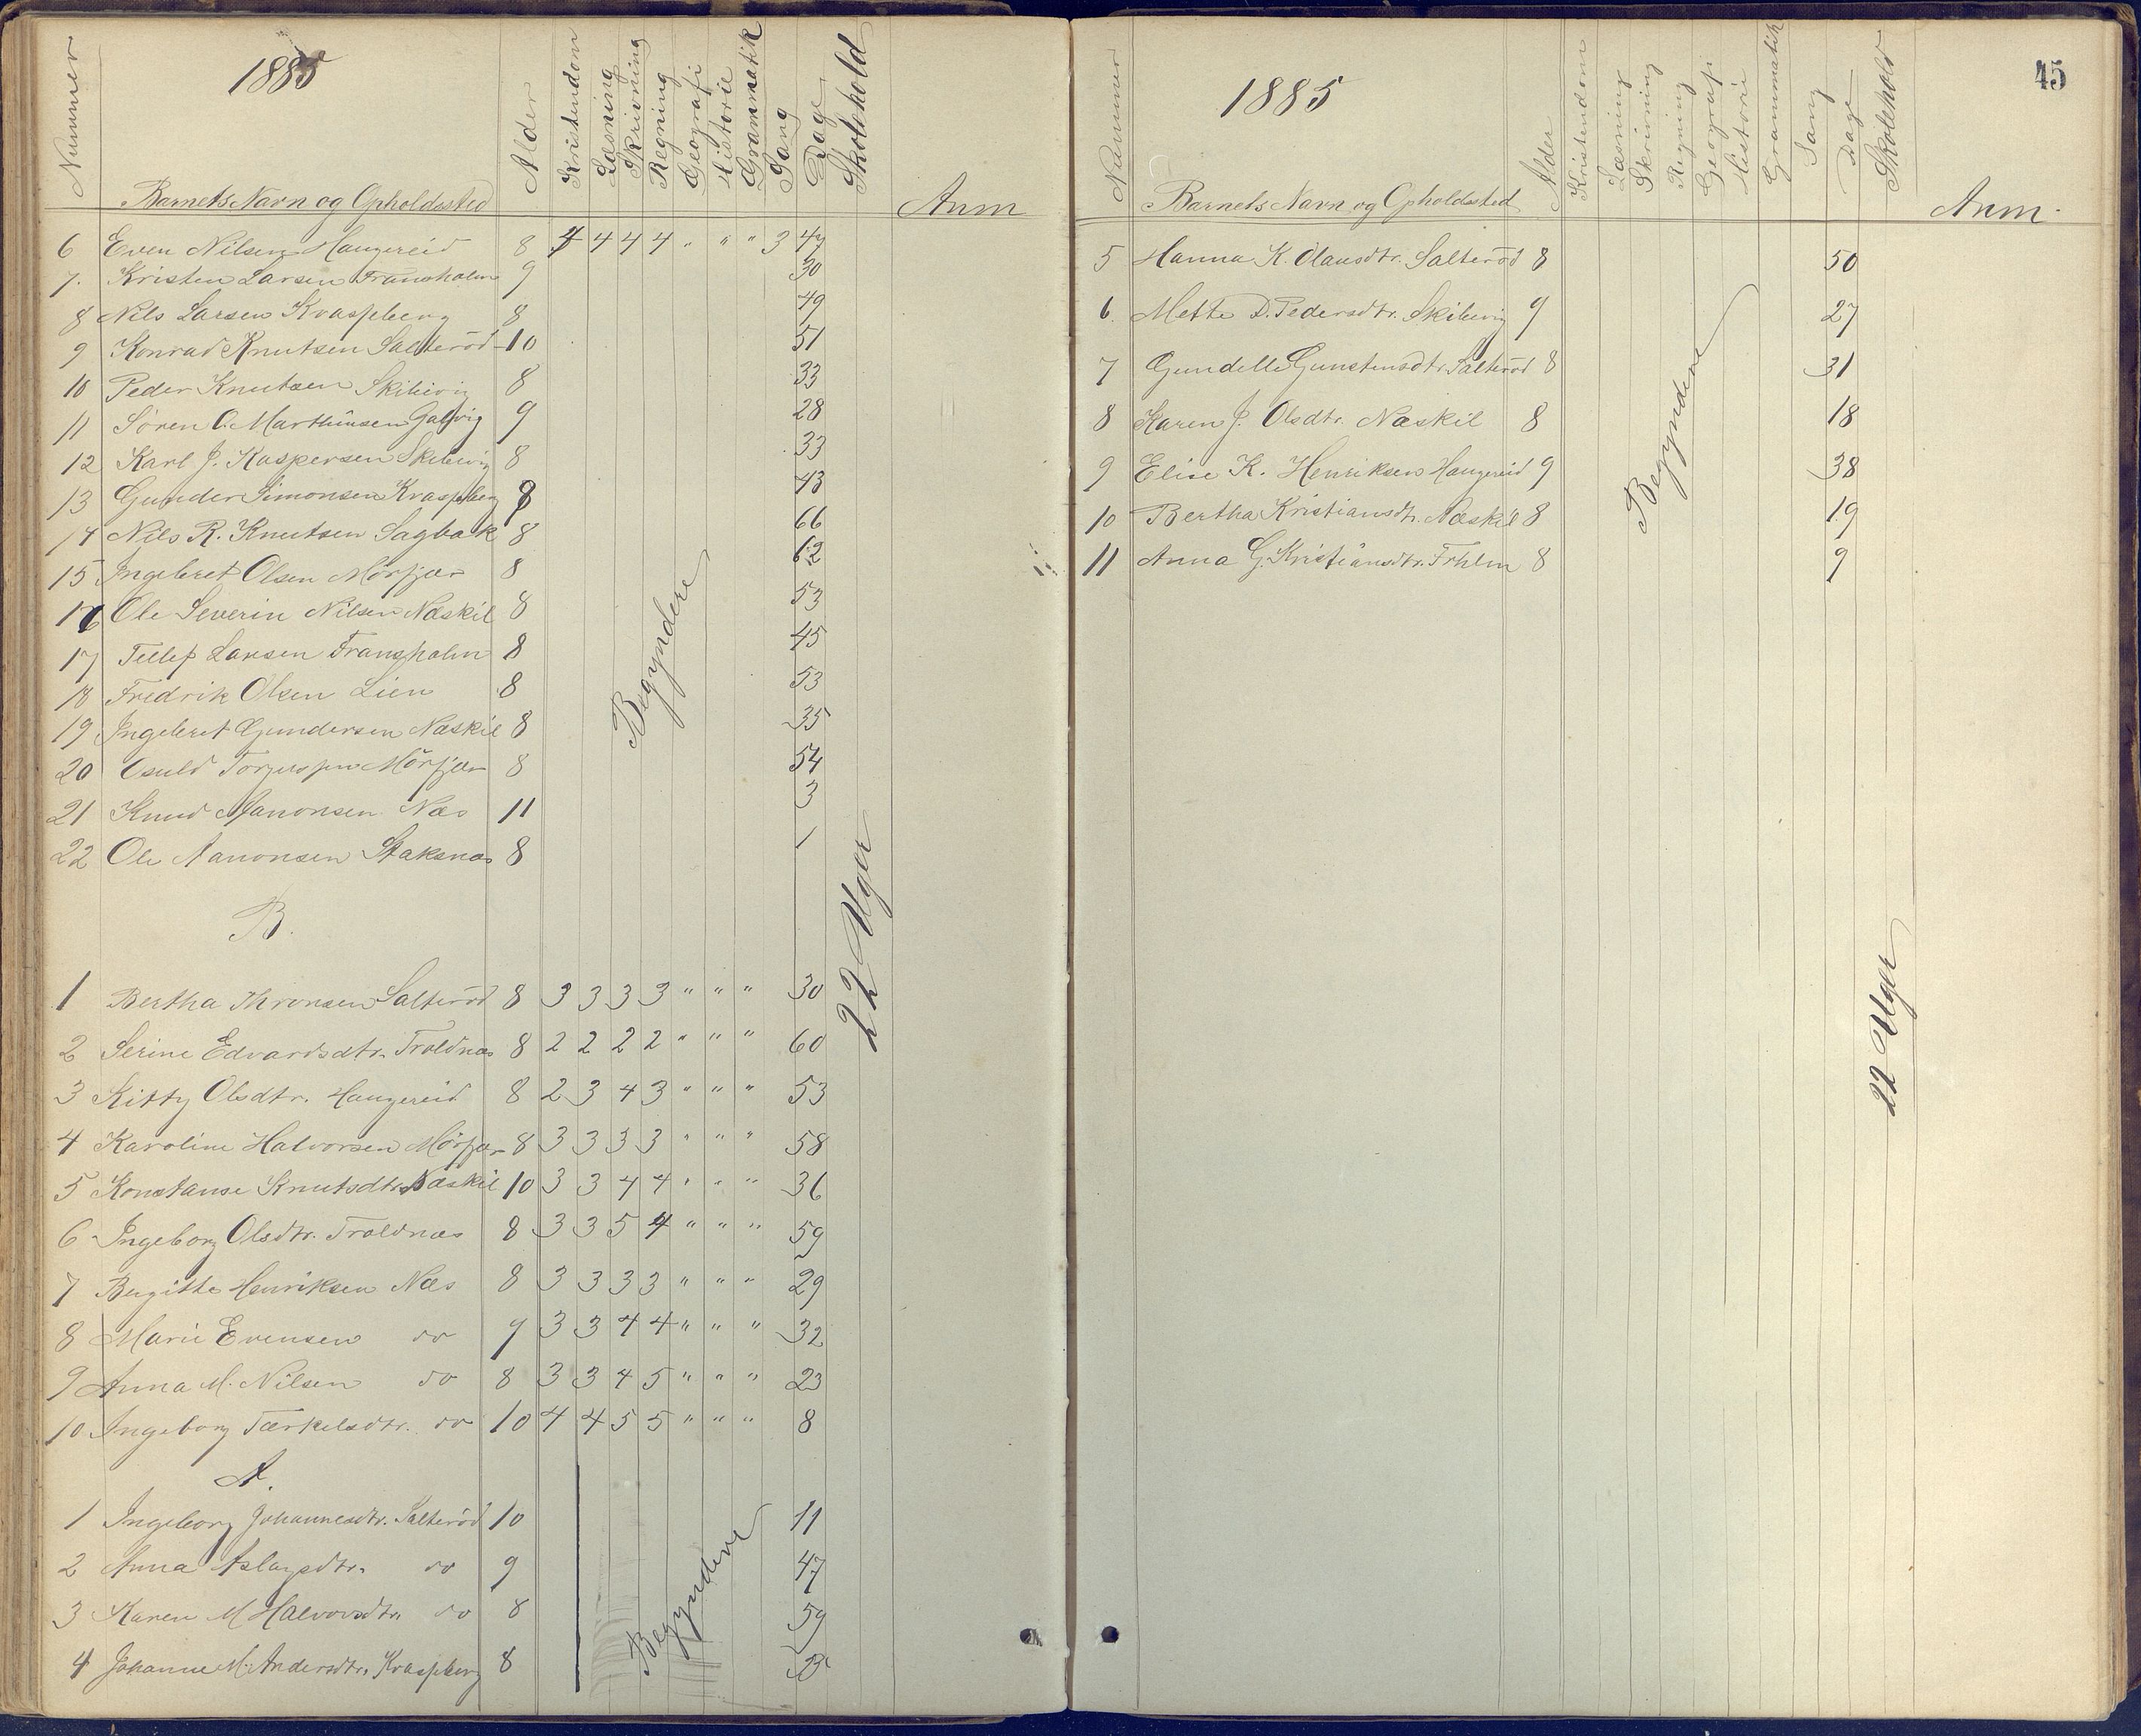 1885
Nummer Barnets Navn og Opholdssted Alder Kristendom Læsning Skrivning Regning Geografi Historie Grammatik Sang Dage Skolehold Anm
6 Even Nilsen Haugereid 8 4 4 4 4 " " " 3 47
7. Kristen Larsen Fransholm 9 30
8 Nils Larsen Kvasfberg 8 49
9 Konrad Knutsen Salterød 10 51
10 Peder Knutsen Skibvig 8 33
11 Søren O. Marthinsen Galvig 9 28
12 Karl J. Kaspersen Skibvig 8 33
13 Gunder Simonsen Krasfberg 8 43
14 Nils R. Knutsen Sagbak 8 66
15 Ingebret Olsen Mörfjær 8 62
16 Ole Severin Nilsen Næskil 8 53
17 Tellef Larsen Fransholm 8 45
18 Fredrik Olsen Lien 8 53
19 Ingebret Gundersen Næskil 8 35
20 Osuld Mörfjær 8 54
21 Knud Aanonsen Næs 11 3
22 Ole Aanonsen Staksnæs 8 1
Begyndere
22 Uger
B.
1 Bertha Thronsen Salterød 8 3 3 3 3 " " " 30
2 Serine Edvardsdtr. Troldnæs 8 2 2 2 2 " " " 60
3 Kitty Olsdtr. Haugereid 8 2 3 4 3 " " " 53
4 Karoline Halvorsen Mörfjær 8 3 3 3 3 " " " 58
5 Konstanse Knutsdtr. Næskil 10 3 3 4 4 " " " 36
6 Ingeborg Olsdtr. Troldnæs 8 3 3 5 4 " " " 59
7 Bergitte Henriksen Næs 8 3 3 3 3 " " " 29
8 Marie Evensen do 9 3 3 4 4 " " " 32
9 Anna M. Nilsen do 8 3 3 4 5 " " " 23
10 Ingeborg Tærkelsdtr. do 10 4 4 5 5 " " " 8
A.
1 Ingeborg Johannesdtr. Salterød 10 11
2 Anna Aslagsdtr. do 9 47
3 Karen M Halvorsdtr. do 8 59
4 Johanne M. Andersdtr. Krasfberg 8
Begyndere
45
1885
Nummer Barnets Navn og Opholdssted Alder Kristendom Læsning Skrivning Regning Geografi Historie Grammatik Sang Dage Skolehold Anm.
5 Hanna K. Olausdtr. Salterød 8 50
6. Mette D. Pedersdtr. Skibvig 9 27
7 Gundelle Gunstensdtr. Salterød 8 31
8 Karen J. Olsdtr. Næskil 8 18
9 Elise K. Henriksen Haugereid 9 38
10 Bertha Kristiansdtr. Næskil 8 19
11 Anna G. Kristiansdtr. Frhlm 8 9
Begyndere
22 Uger